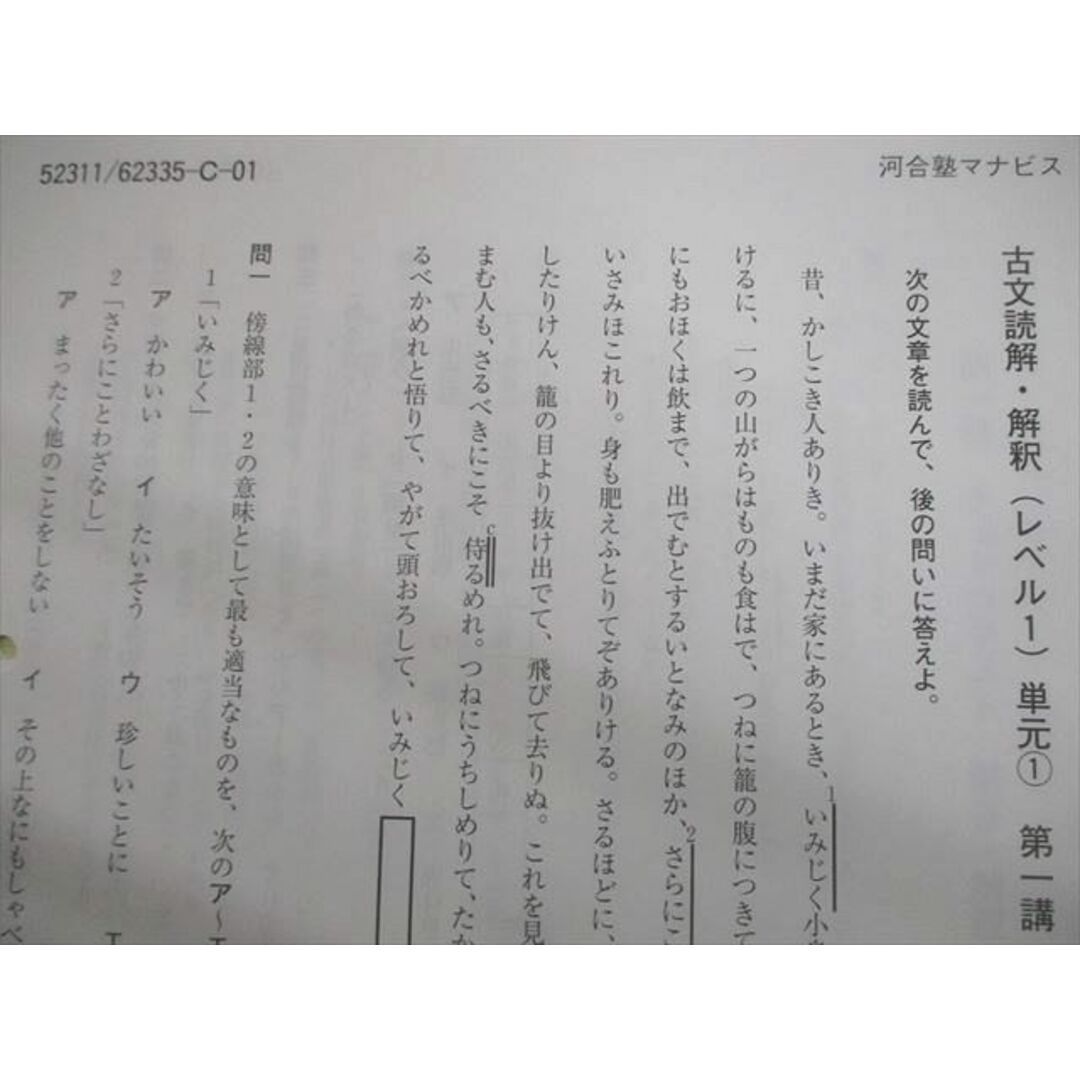 52311/62335-C-01
河合塾マナビス
古文読解・解釈（レベル1）単元① 第一講
次の文章を読んで、後の問いに答えよ。
昔、かしこき人ありき。いまだ家にあるとき、1いみじく小
けるに、一つの山がらはものも食はで、つねに籠の腹につきて
にもおほくは飲まで、出でむとするいとなみのほか、2さらにこ
いさみほこれり。身も肥えふとりてぞありける。さるほどに、
したりけん、籠の目より抜け出でて、飛びて去りぬ。これを見
まむ人も、さるべきにこそc侍るめれ。つねにうちしめりて、たか
るべかめれと悟りて、やがて頭おろして、いみじく
問一 傍線部1・2の意味として最も適当なものを、次のア〜エ
1「いみじく」
ア かわいい イ たいそう ウ 珍しいことに エ
2「さらにことわざなし」
ア まったく他のことをしない
イ その上なにもしゃべ